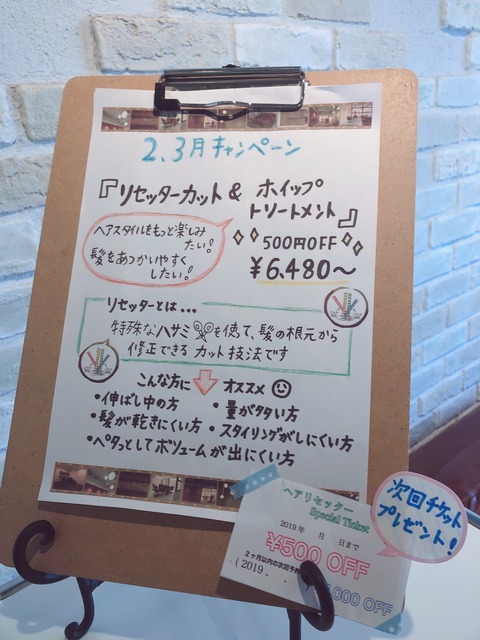 2、3月キャンペーン
『リセッターカット & ホイップ
トリートメント』
ヘアスタイルをもっと楽しみ
たい!
髪をあつかいやすく
したい!
500円OFF
¥6,480〜
リセッターとは...
特殊なハサミを使って、髪の根元から
修正できる カット技法です
こんな方に オススメ
・伸ばし中の方
・量が多い方
・髪が乾きにくい方
・スタイリングがしにくい方
・ペタっとしてボリュームが出にくい方
ヘアリセッター
Special Ticket
2019年 月 日まで
¥500 OFF
2ヶ月以内の次回予約
(2019. .
,000 OFF
次回チケット
プレゼント!